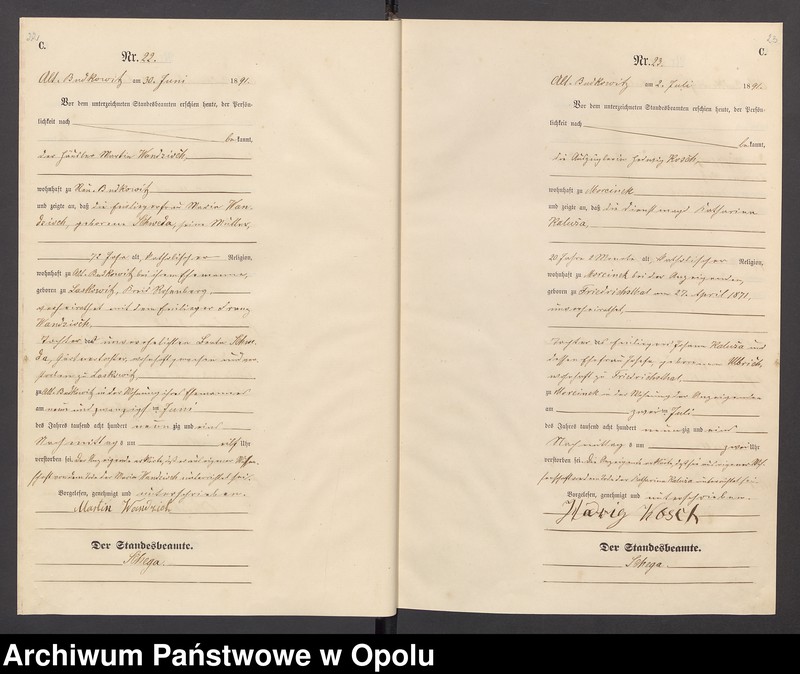 22
C.
Nr. 22.
Alt-Budkowitz am 30. Juni 1891.
Vor dem unterzeichneten Standesbeamten erschien heute, der Persön-
lichkeit nach
bekannt,
der Häusler Martin Wandzisch,
wohnhaft zu Neu-Budkowitz
und zeigte an, daß die Einliegerfrau Maria Wan-
dzisch, geborene Schweda, seine Mutter,
72 Jahr alt, katholischer Religion,
wohnhaft zu Alt-Budkowitz bei ihrem Ehemanne,
geboren zu Laskowitz, Kreis Rosenberg
verheirathet mit dem Einlieger Franz
Wandzisch
Tochter der unverehelichten
zu Laskowitz,
zu Alt-Budkowitz in der Wohnung ihres Ehemannes
am neun und zwanzigsten Juni
des Jahres tausend acht hundert neunzig und eins
Nachmittags um Uhr
verstorben sei. Der Anzeigende erklärte, daß er aus eigener Wissen-
schaft von dem Tode der Maria Wandzisch unterrichtet sei.
Vorgelesen, genehmigt und unterschrieben.
Martin Wandzich
Der Standesbeamte.
23
C.
Nr. 23.
Alt-Budkowitz am 2. Juli 1891.
Vor dem unterzeichneten Standesbeamten erschien heute, der Persön-
lichkeit nach
bekannt,
die Auszüglerin Hedwig Kosch,
wohnhaft zu Morcinek
und zeigte an, daß die Dienstmagd Katharina
Kaluża,
20 Jahre 2 Monate alt, katholischer Religion,
wohnhaft zu Morcinek bei der Anzeigenden,
geboren zu Friedrichsthal am 27. April 1871,
unverheirathet,
Tochter des Einliegers Johann Kaluża und
dessen Ehefrau Josefa, geborenen Ulbrich,
wohnhaft zu Friedrichsthal
zu Morcinek in der Wohnung der Anzeigenden
am zweiten Juli
des Jahres tausend acht hundert neunzig und eins
Nachmittags um zwei Uhr
verstorben sei. Die Anzeigende erklärte, daß sie aus eigener Wis-
senschaft von dem Tode der Katharina Kaluża unterrichtet sei.
Vorgelesen, genehmigt und unterschrieben.
Hedwig Kosch
Der Standesbeamte.
Archiwum Państwowe w Opolu